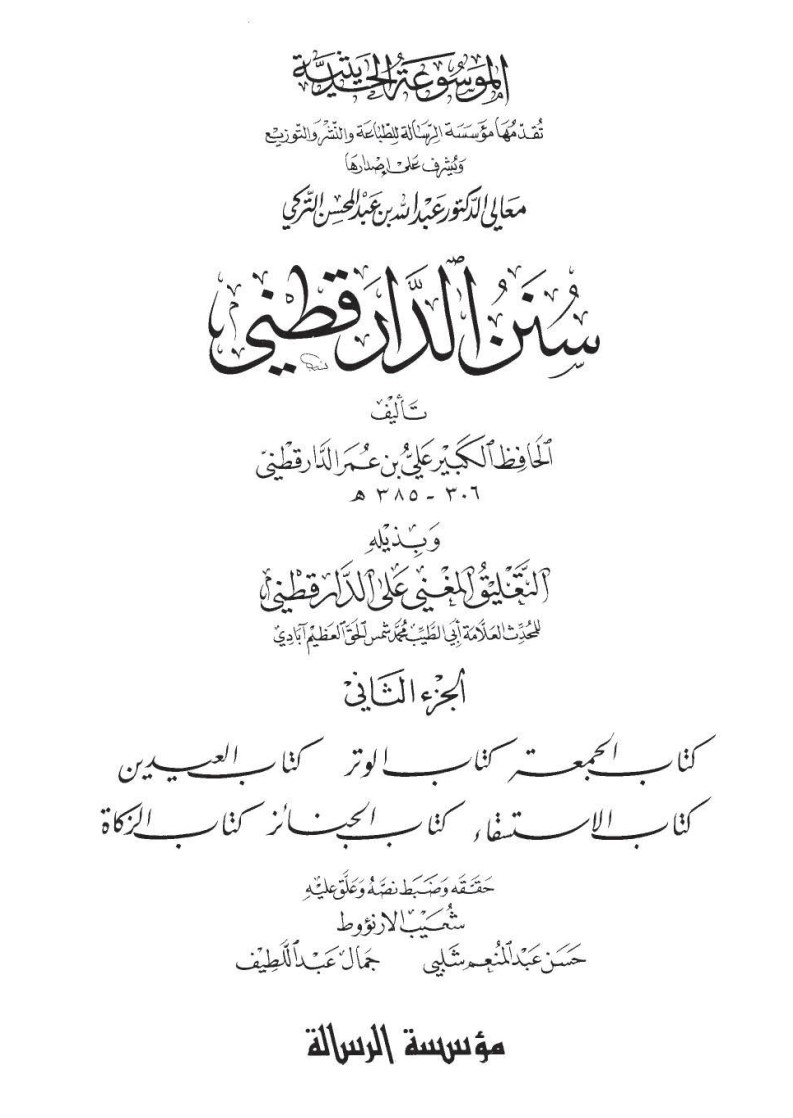 الموسوعة الحديثية
تقدمها مؤسسة الرسالة للطباعة والنشر والتوزيع
ويشرف على إصدارها
معالي الدكتور عبد الله بن عبد المحسن التركي
سُنَنُ الدَّارَقُطْنِي
تأليف
الحافظ الكبير عليّ بن عمر الدارقطنيّ
٣٠٦ - ٣٨٥ هـ
وبذيله
التعليق المغني على الدارقطني
للمحدث العلامة أبي الطيب محمد شمس الحق العظيم آبادي
الجزء الثاني
كتاب الجمعة كتاب الوتر كتاب العيدين
كتاب الاستسقاء كتاب الجنائز كتاب الزكاة
حققه وضبط نصه وعلق عليه
شعيب الارنؤوط
حسن عبد المنعم شلبي جمال عبد اللطيف
مؤسسة الرسالة